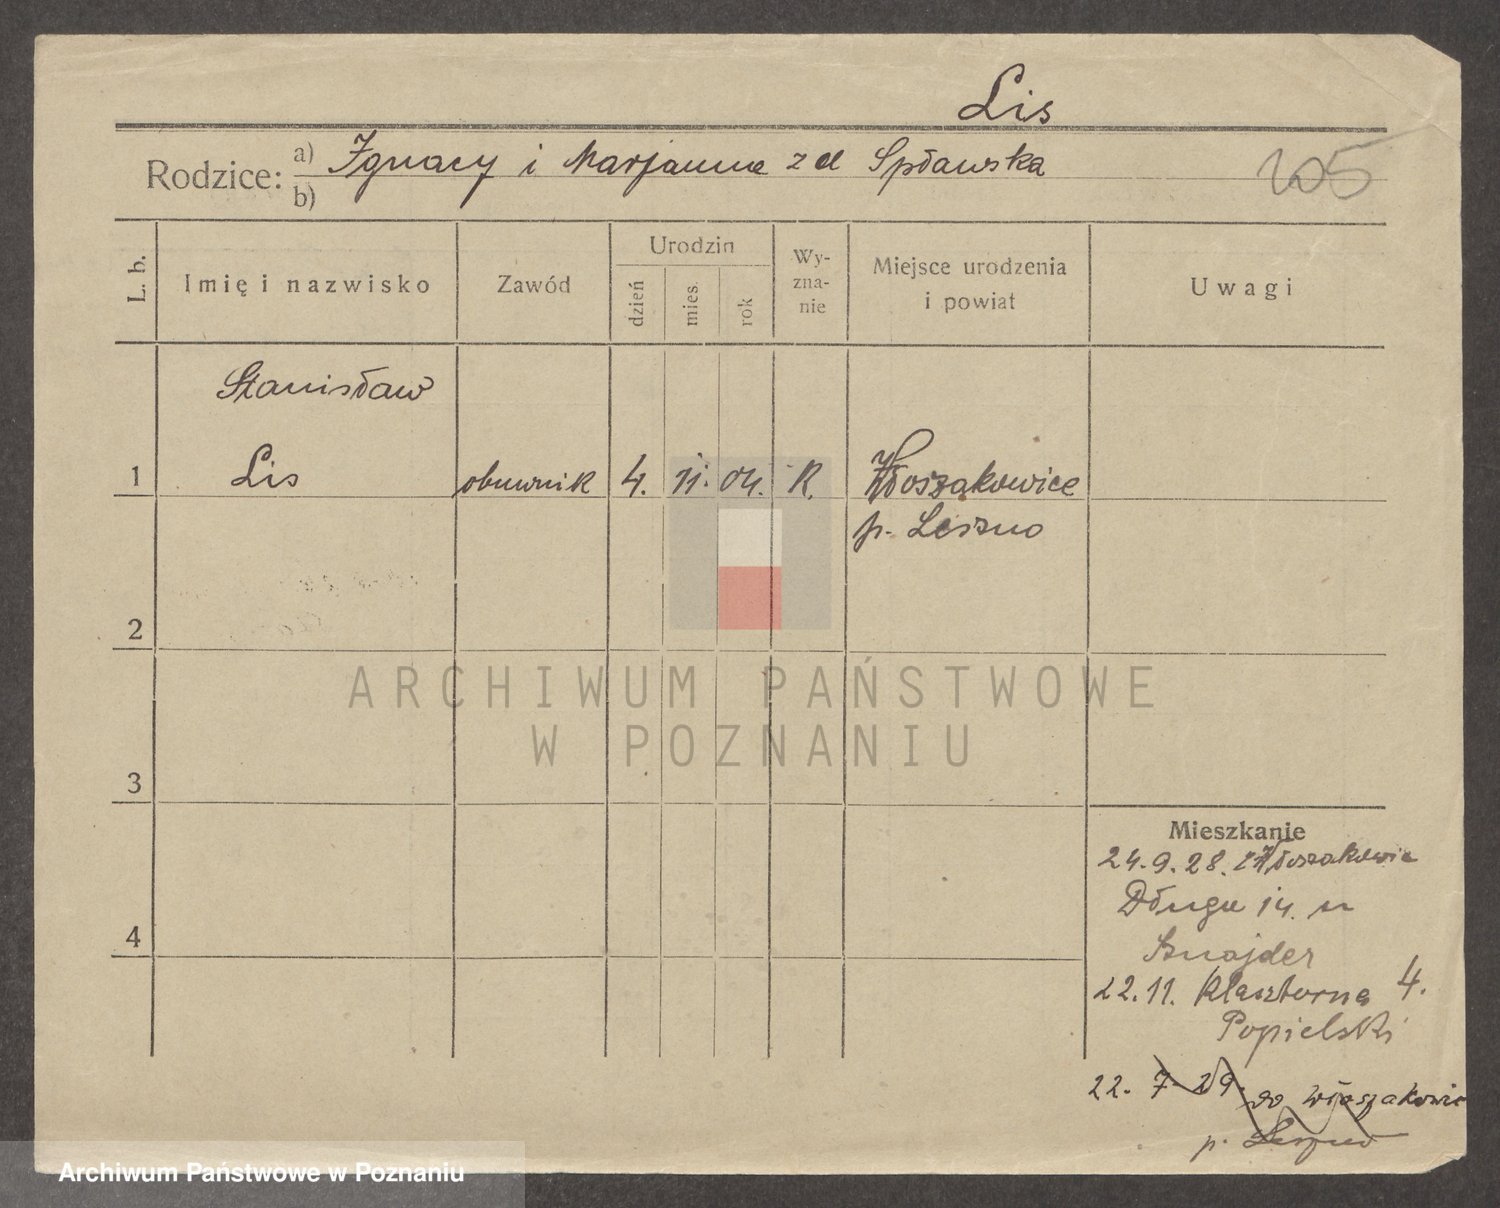 Lis
Rodzice: a) Ignacy i Marjanna z d Spławska
b)
205
L. b.
Imię i nazwisko
Zawód
Urodzin
dzień
mies.
rok
Wy-
zna-
nie
Miejsce urodzenia
i powiat
Uwagi
Stanisław
1 Lis obuwnik 4. 11. 04. R. Włoszakowice
p. Leszno
2
3
4
Mieszkanie
24.9.28. z Włoszakowic
Długa 14. u
Sznajder
22.11. Klasztorna 4.
Popielski
22. 7. 29. do Włoszakowic
p. Leszno
ARCHIWUM PAŃSTWOWE
W POZNANIU
Archiwum Państwowe w Poznaniu